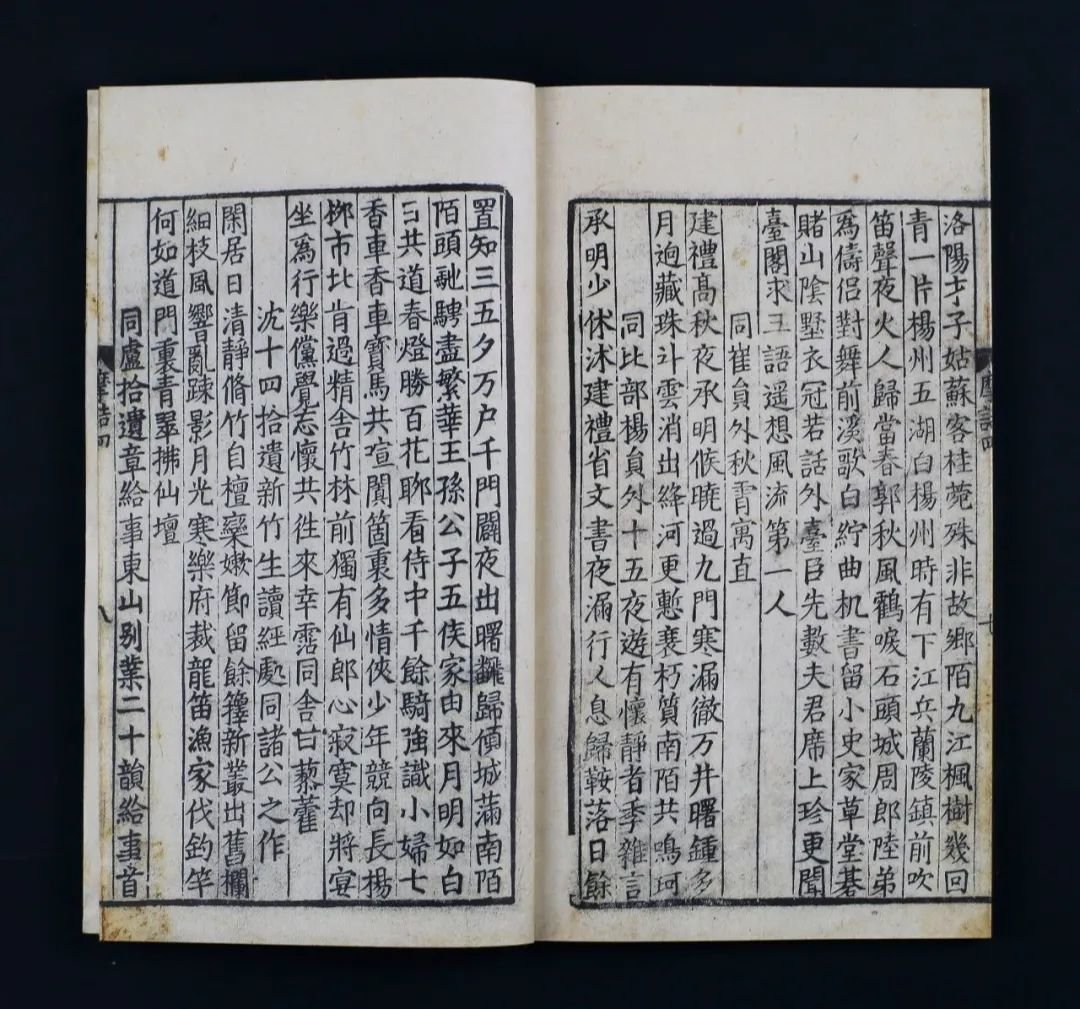 洛陽才子姑蘇客桂菀殊非故鄉陌九江楓樹幾回
青一片楊州五湖白楊州時有下江兵蘭陵鎮前吹
笛聲夜火人歸當春郭秋風鶴唳石頭城周郎陸弟
爲儔侶對舞前溪歌白紵曲机書留小史家草堂棊
賭山陰墅衣冠若話外臺臣先數夫君席上珍更聞
臺閣求三語遥想風流第一人
同崔貟外秋霄寓直
建禮高秋夜承明候曉過九門寒漏徹万井曙鍾多
月逈藏珠斗雲消出絳河更慙衰朽質南陌共鳴珂
同比部楊貟外十五夜遊有懷靜者季雜言
承明少休沐建禮省文書夜漏行人息歸鞍落日餘
摩詰四
七
置知三五夕万户千門闢夜出曙飜歸傾城滿南陌
陌頭馳騁盡繁華王孫公子五侯家由來月明如白
日共道春燈勝百花聊看侍中千餘騎強識小婦七
香車香車寳馬共喧闐箇裏多情俠少年競向長楊
栁市北肯過精舎竹林前獨有仙郎心寂寞却將宴
坐爲行樂儻覺忘懷共徃來幸霑同舎甘藜藿
沈十四拾遺新竹生讀經處同諸公之作
閑居日清靜脩竹自檀欒嫩節留餘籜新叢出舊欄
細枝風響亂踈影月光寒樂府裁龍笛漁家伐釣竿
何如道門裏青翠拂仙壇
同盧拾遺章給事東山别業二十韻給事首
摩詰四
八